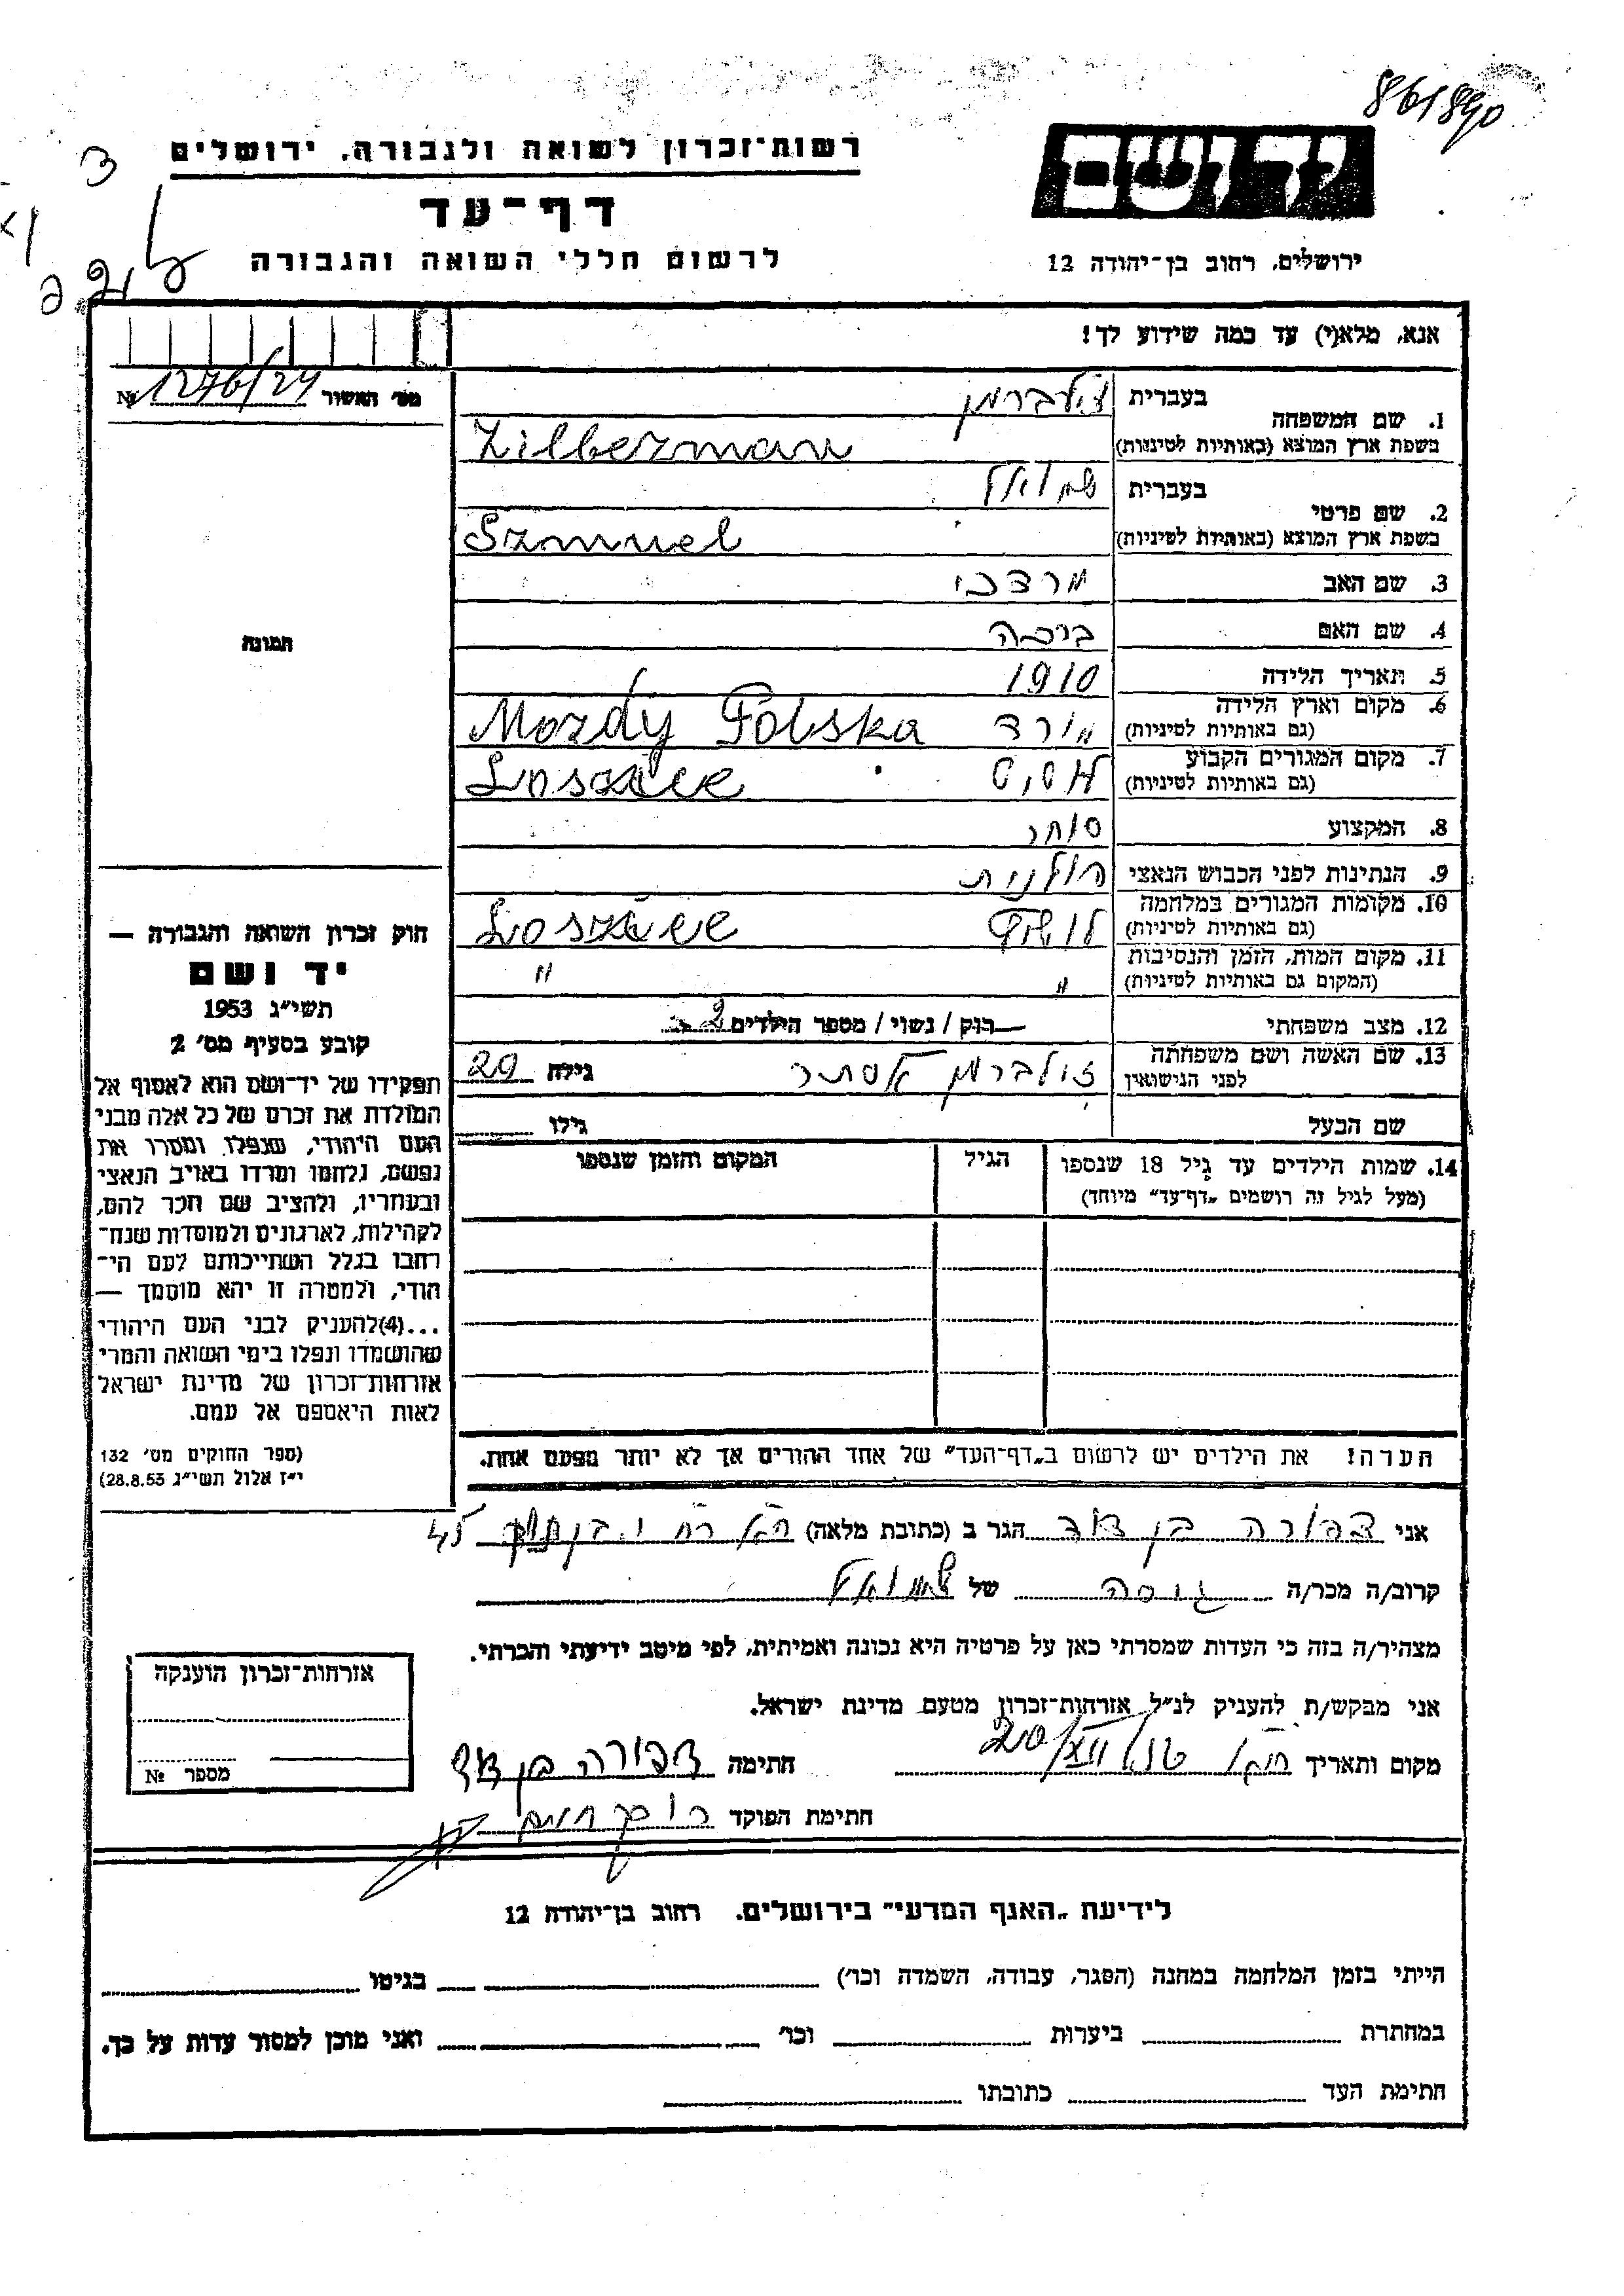 861890
רשות־זכרון לשואה ולגבורה, ירושלים
דף־עד
לרשום חללי השואה והגבורה
יד ושם
ירושלים, רחוב בן־יהודה 12
אנא, מלא(י) עד כמה שידוע לך!
מס' האשור № 1276/24
1. שם המשפחה בעברית זילברמן
בשפת ארץ המוצא (באותיות לטיניות) Zilberman
2. שם פרטי בעברית שמואל
בשפת ארץ המוצא (באותיות לטיניות) Szmuel
3. שם האב מרדכי
4. שם האם ברכה
5. תאריך הלידה 1910
6. מקום וארץ הלידה מורד Mordy Polska
(גם באותיות לטיניות)
7. מקום המגורים הקבוע
(גם באותיות לטיניות)
8. המקצוע סוחר
9. הנתינות לפני הכבוש הנאצי פולנית
10. מקומות המגורים במלחמה
(גם באותיות לטיניות)
11. מקום המות, הזמן והנסיבות " "
(המקום גם באותיות לטיניות)
12. מצב משפחתי רוק / נשוי / מספר הילדים 2
13. שם האשה ושם משפחתה זילברמן אסתר גילה 29
לפני הנישואין
שם הבעל גילו
14. שמות הילדים עד גיל 18 שנספו הגיל המקום והזמן שנספו
(מעל לגיל זה רושמים „דף־עד" מיוחד)
הערה! את הילדים יש לרשום ב„דף־העד" של אחד ההורים אך לא יותר מפעם אחת.
תמונה
חוק זכרון השואה והגבורה —
יד ושם
תשי״ג 1953
קובע בסעיף מס' 2
תפקידו של יד־ושם הוא לאסוף אל
המולדת את זכרם של כל אלה מבני
העם היהודי, שנפלו ומסרו את
נפשם, נלחמו ומרדו באויב הנאצי
ובעוזריו, ולהציב שם וזכר להם,
לקהילות, לארגונים ולמוסדות שנח־
רבו בגלל השתייכותם לעם הי־
הודי, ולמטרה זו יהא מוסמך —
...(4)להעניק לבני העם היהודי
שהושמדו ונפלו בימי השואה והמרי
אזרחות־זכרון של מדינת ישראל
לאות היאספם אל עמם.
(ספר החוקים מס' 132
י״ז אלול תשי״ג 28.8.53)
אני צפורה בן דוד הגר ב (כתובת מלאה) 45
קרוב/ה מכר/ה גיסה של שמואל
מצהיר/ה בזה כי העדות שמסרתי כאן על פרטיה היא נכונה ואמיתית, לפי מיטב ידיעתי והכרתי.
אני מבקש/ת להעניק לנ״ל אזרחות־זכרון מטעם מדינת ישראל.
מקום ותאריך חתימה צפורה בן דוד
חתימת הפוקד
אזרחות־זכרון הוענקה
מספר №
לידיעת „האגף המדעי" בירושלים. רחוב בן־יהודה 12
הייתי בזמן המלחמה במחנה (הסגר, עבודה, השמדה וכו') בגיטו
במחתרת ביערות וכו' ואני מוכן למסור עדות על כך.
חתימת העד כתובתו